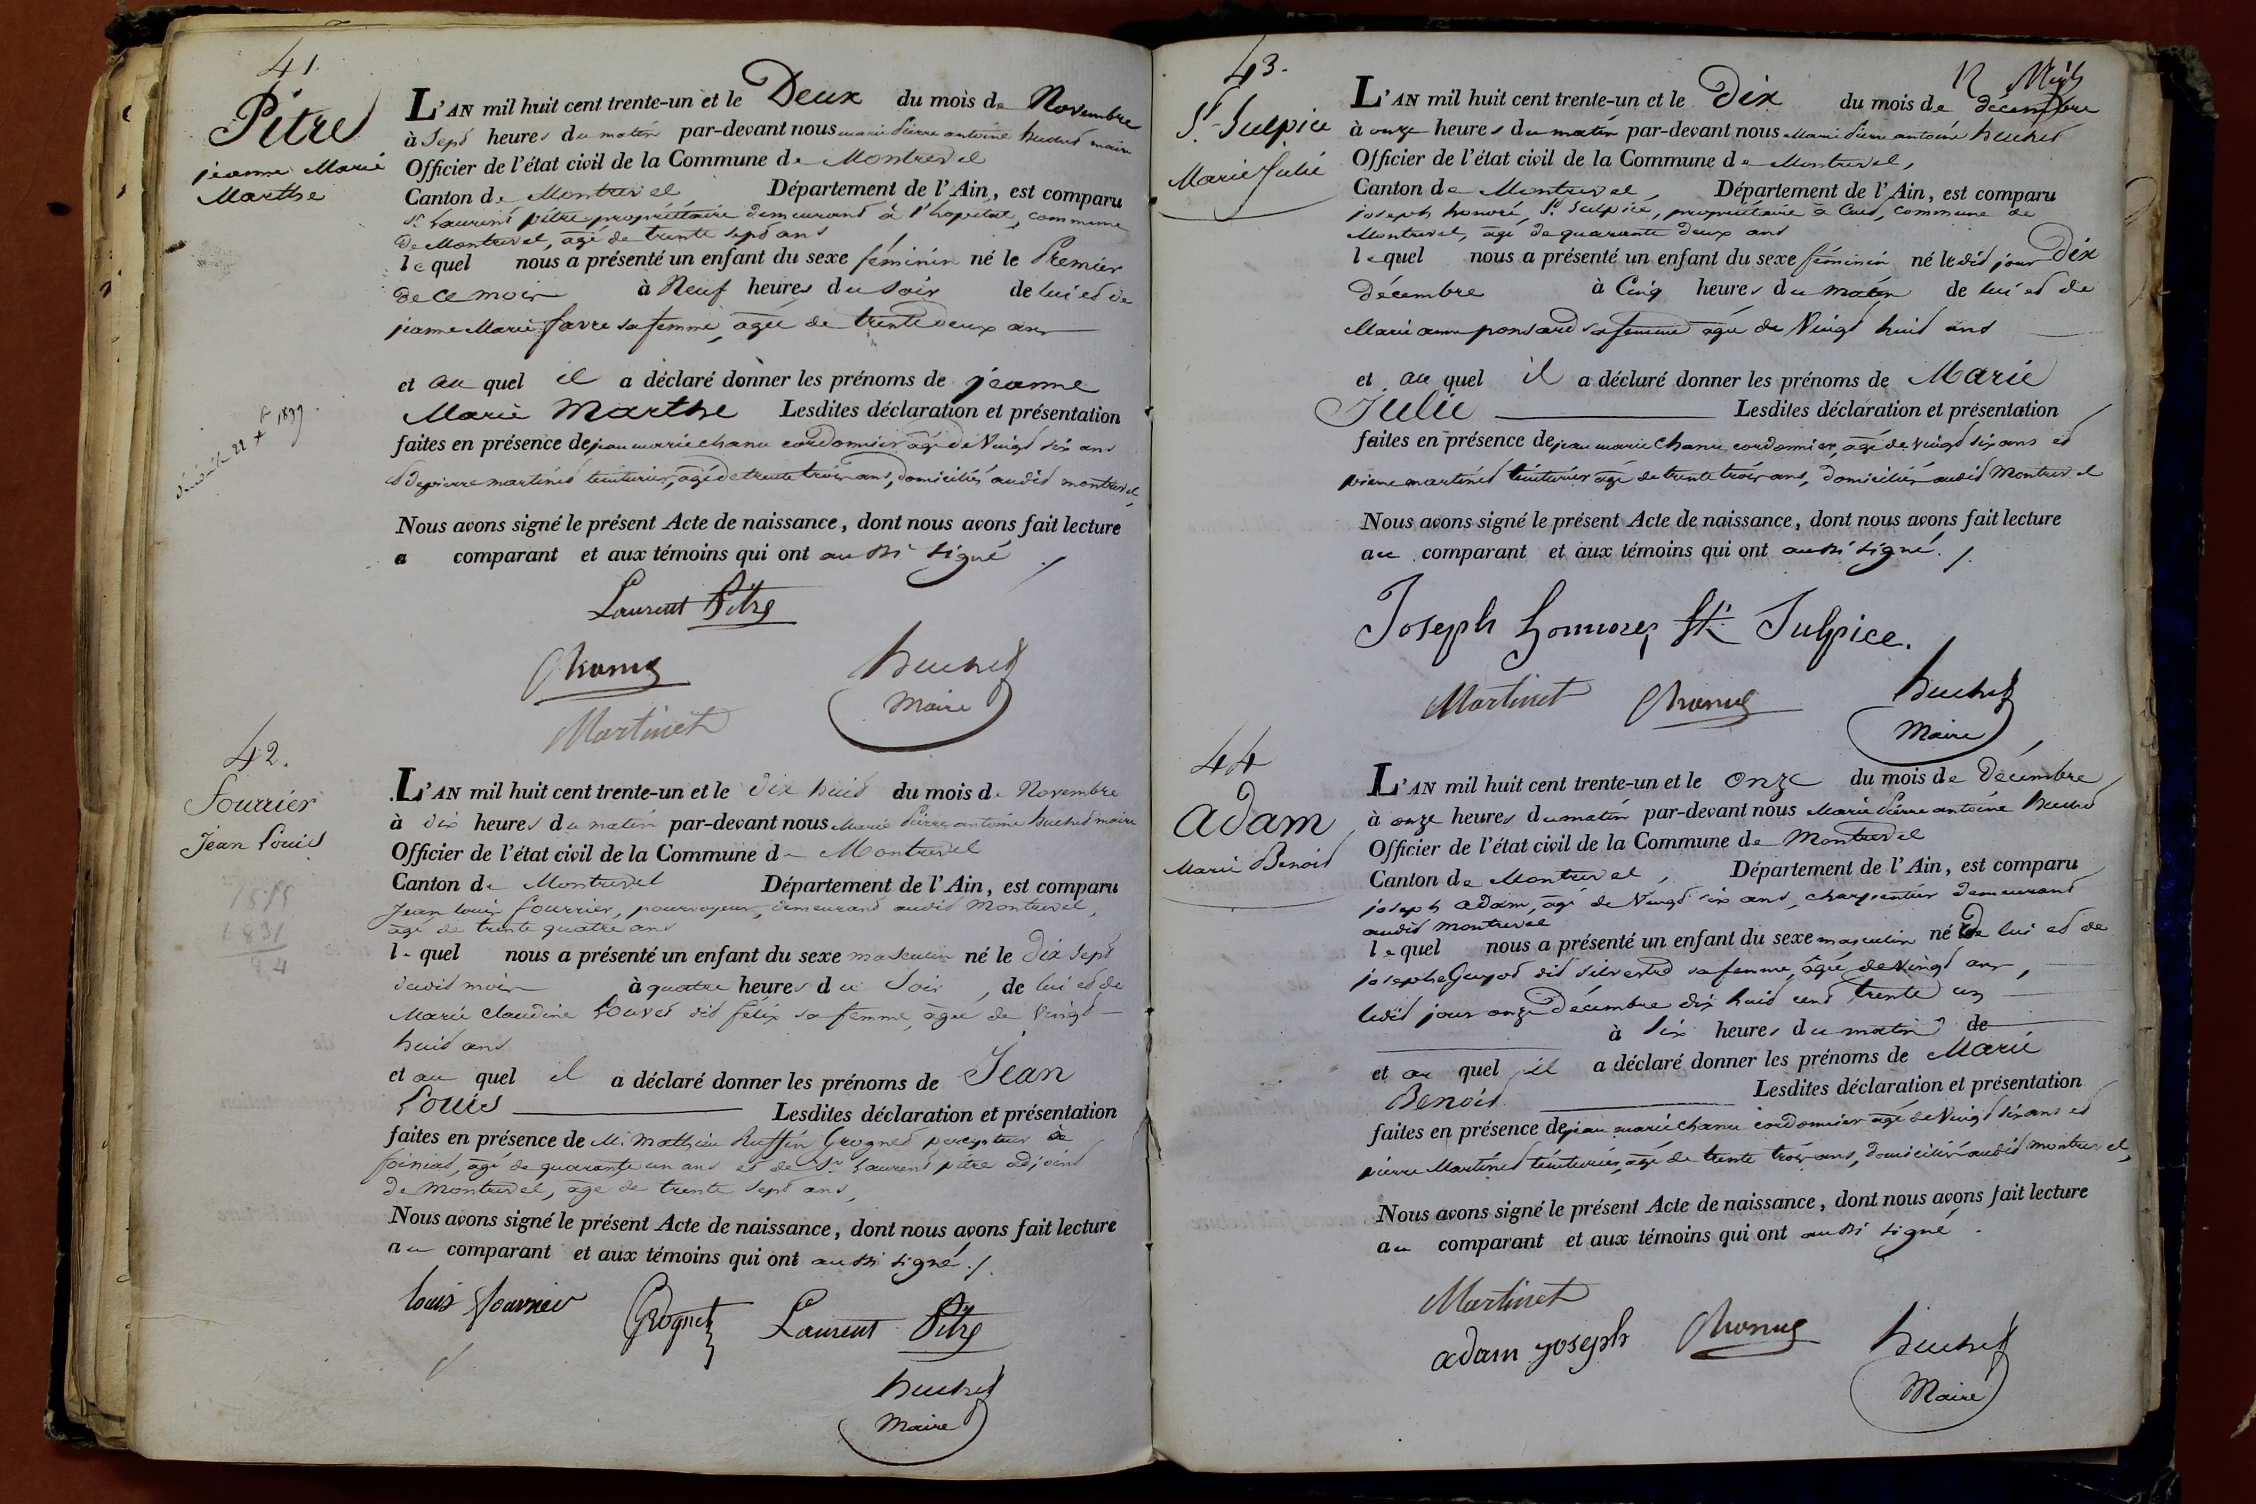 41.
Pitre
jeanne Marie
Marthe
L'AN mil huit cent trente-un et le Deux du mois de Novembre
à Sept heures du matin par-devant nous marie Pierre antoine huchet maire
Officier de l'état civil de la Commune de Montrevel
Canton de Montrevel Département de l'Ain, est comparu
Sr. Laurent pitre propriétaire demeurant à l'hopital, commune
De Montrevel, agé de trente sept ans
lequel nous a présenté un enfant du sexe féminin né le Premier
de ce mois à Neuf heures du Soir de lui et de
jeanne Marie favre sa femme, agée de trente deux ans
et au quel il a déclaré donner les prénoms de jeanne
Marie Marthe Lesdites déclaration et présentation
faites en présence de jean marie chanu cordonnier agé de Vingt six ans
et de pierre martinet teinturier, agé de trente trois ans, domiciliés audit montrevel,
Nous avons signé le présent Acte de naissance, dont nous avons fait lecture
a comparant et aux témoins qui ont aussi signé ./
Laurent Pitre
Chanu
huchet
Maire
Martinet
42.
fourrier
Jean Louis
1831
L'AN mil huit cent trente-un et le dix huit du mois de Novembre
à dix heures du matin par-devant nous Marie Pierre antoine huchet maire
Officier de l'état civil de la Commune de Montrevel
Canton de Montrevel Département de l'Ain, est comparu
Jean louis fourrier, pourvoyeur, demeurant audit Montrevel,
agé de trente quatre ans
lequel nous a présenté un enfant du sexe masculin né le dix sept
dudit mois à quatre heures du Soir, de lui et de
Marie Claudine Louvet dit félix sa femme, agée de Vingt
huit ans
et au quel il a déclaré donner les prénoms de Jean
Louis Lesdites déclaration et présentation
faites en présence de M. Mathieu Ruffin Grognet percepteur à
foissiat, agé de quarante un ans et de Sr. Laurent pitre adjoint
de Montrevel, agé de trente sept ans,
Nous avons signé le présent Acte de naissance, dont nous avons fait lecture
au comparant et aux témoins qui ont aussi signé ./.
louis fourrier
Grognet
Laurent Pitre
huchet
Maire
43.
St. Sulpice
Marie Julie
L'AN mil huit cent trente-un et le Dix du mois de décembre
à onze heures du matin par-devant nous Marie Pierre antoine huchet
Officier de l'état civil de la Commune de Montrevel,
Canton de Montrevel, Département de l'Ain, est comparu
joseph honoré, St. Sulpice, propriétaire à Cuet, commune de
Montrevel, agé de quarante deux ans
lequel nous a présenté un enfant du sexe féminin né ledit jour Dix
Décembre à Cinq heures du matin de lui et de
Marie anne ponsard sa femme agée de Vingt huit ans
et au quel il a déclaré donner les prénoms de Marie
Julie Lesdites déclaration et présentation
faites en présence de jean marie chanu cordonnier, agé de vingt six ans et
pierre martinet teinturier agé de trente trois ans, domiciliés audit Montrevel
Nous avons signé le présent Acte de naissance, dont nous avons fait lecture
au comparant et aux témoins qui ont aussi signé. /.
Joseph honnore, St. Sulpice.
Martinet
Chanu
huchet
Maire
44
adam
Marie Benoit
L'AN mil huit cent trente-un et le onze du mois de Décembre
à onze heures du matin par-devant nous Marie Pierre antoine huchet
Officier de l'état civil de la Commune de Montrevel
Canton de Montrevel, Département de l'Ain, est comparu
joseph adam, agé de Vingt six ans, charpentier demeurant
audit montrevel
lequel nous a présenté un enfant du sexe masculin né de lui et de
josephe Guyot dit silvestre sa femme, âgée de vingt ans,
ledit jour onze Décembre dix huit cent trente un
à Six heures du matin de
et au quel il a déclaré donner les prénoms de Marie
Benoit Lesdites déclaration et présentation
faites en présence de jean marie chanu cordonnier agé de Vingt six ans et
pierre Martinet teinturier, agé de trente trois ans, domiciliés audit montrevel,
Nous avons signé le présent Acte de naissance, dont nous avons fait lecture
au comparant et aux témoins qui ont aussi signé.
Martinet
adam joseph
Chanu
huchet
Maire